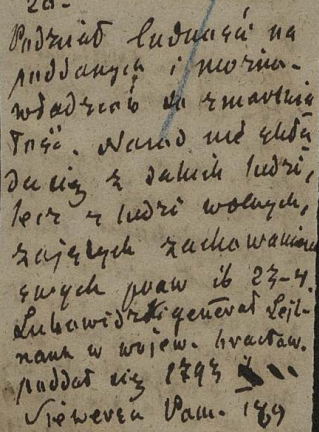 20.
Podział ludności na
poddanych i możno-
władzców to zmartwia
łość. Naród nie składa
da się z takich ludzi,
lecz z ludzi wolnych,
zajętych zachowaniem
swych praw ib 23-4.
Lubowidzki generał Lejt-
nant w wojew. bracław.
poddał się 1793
Siewersa Pam. 189